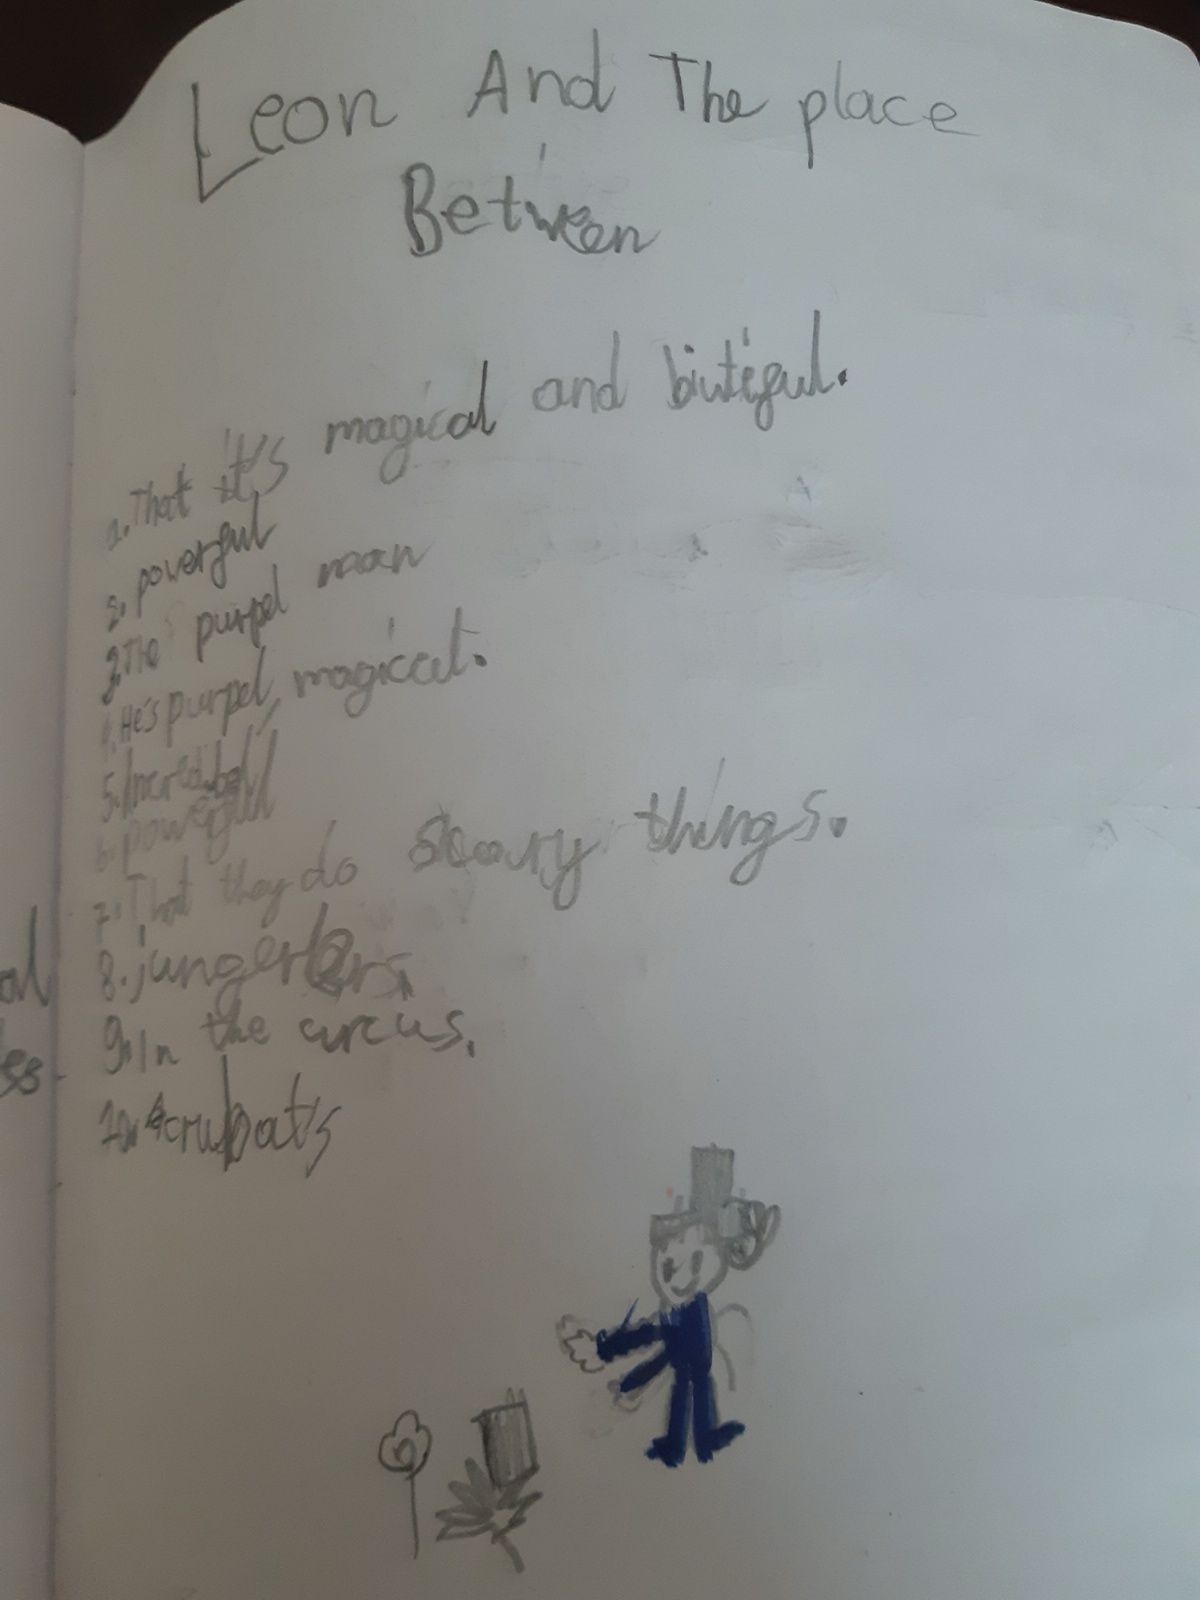 Leon And The place
Between
1. That it's magical and biutiful.
2. powerful
3. The purpel man
4. He's purpel, magical.
5. Incredibell
6. powerful
7. That they do scary things.
8. jungerlers.
9. In the circus.
10. Acrubat's
al
es